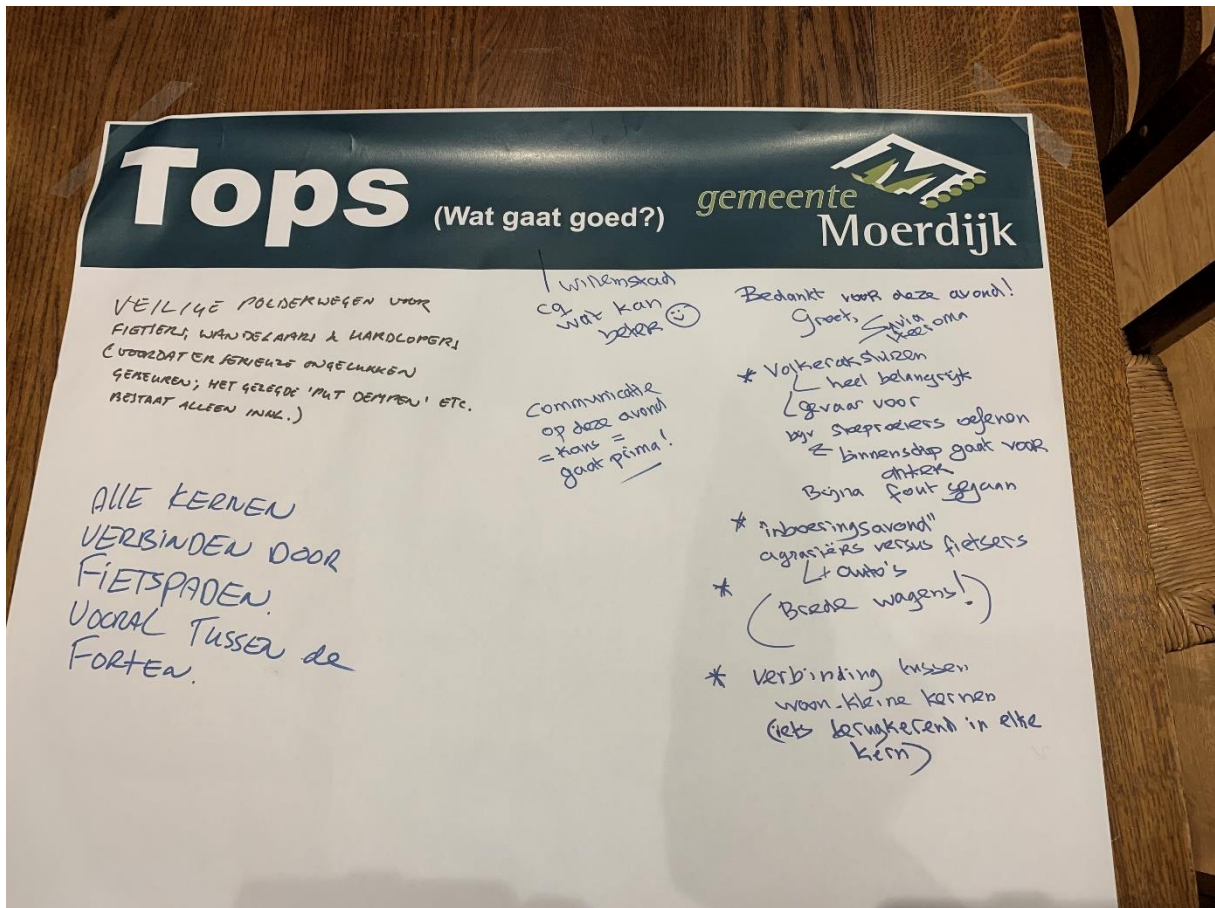 Tops (Wat gaat goed?)
gemeente
Moerdijk
VEILIGE POLDERWEGEN VOOR
FIETSERS, WANDELAARS & HARDLOPERS
(VOORDAT ER SERIEUZE ONGELUKKEN
GEBEUREN; HET GEZEGDE 'PUT DEMPEN' ETC.
BESTAAT ALLEEN
ALLE KERNEN
VERBINDEN DOOR
FIETSPADEN.
VOORAL TUSSEN de
FORTEN.
willemstad
cq
wat kan
beter
Communicatie
op deze avond
= kans =
gaat prima!
Bedankt voor deze avond!
Groet,
* Volkeraksluizen
heel belangrijk
gevaar voor
bijv oefenen
binnenschip gaat voor
Bijna fout gegaan
* "inboeringsavond"
agrariërs versus fietsers
+ auto's
*
(Brede wagens!)
* verbinding tussen
woon-kleine kernen
(iets terugkerend in elke
kern)